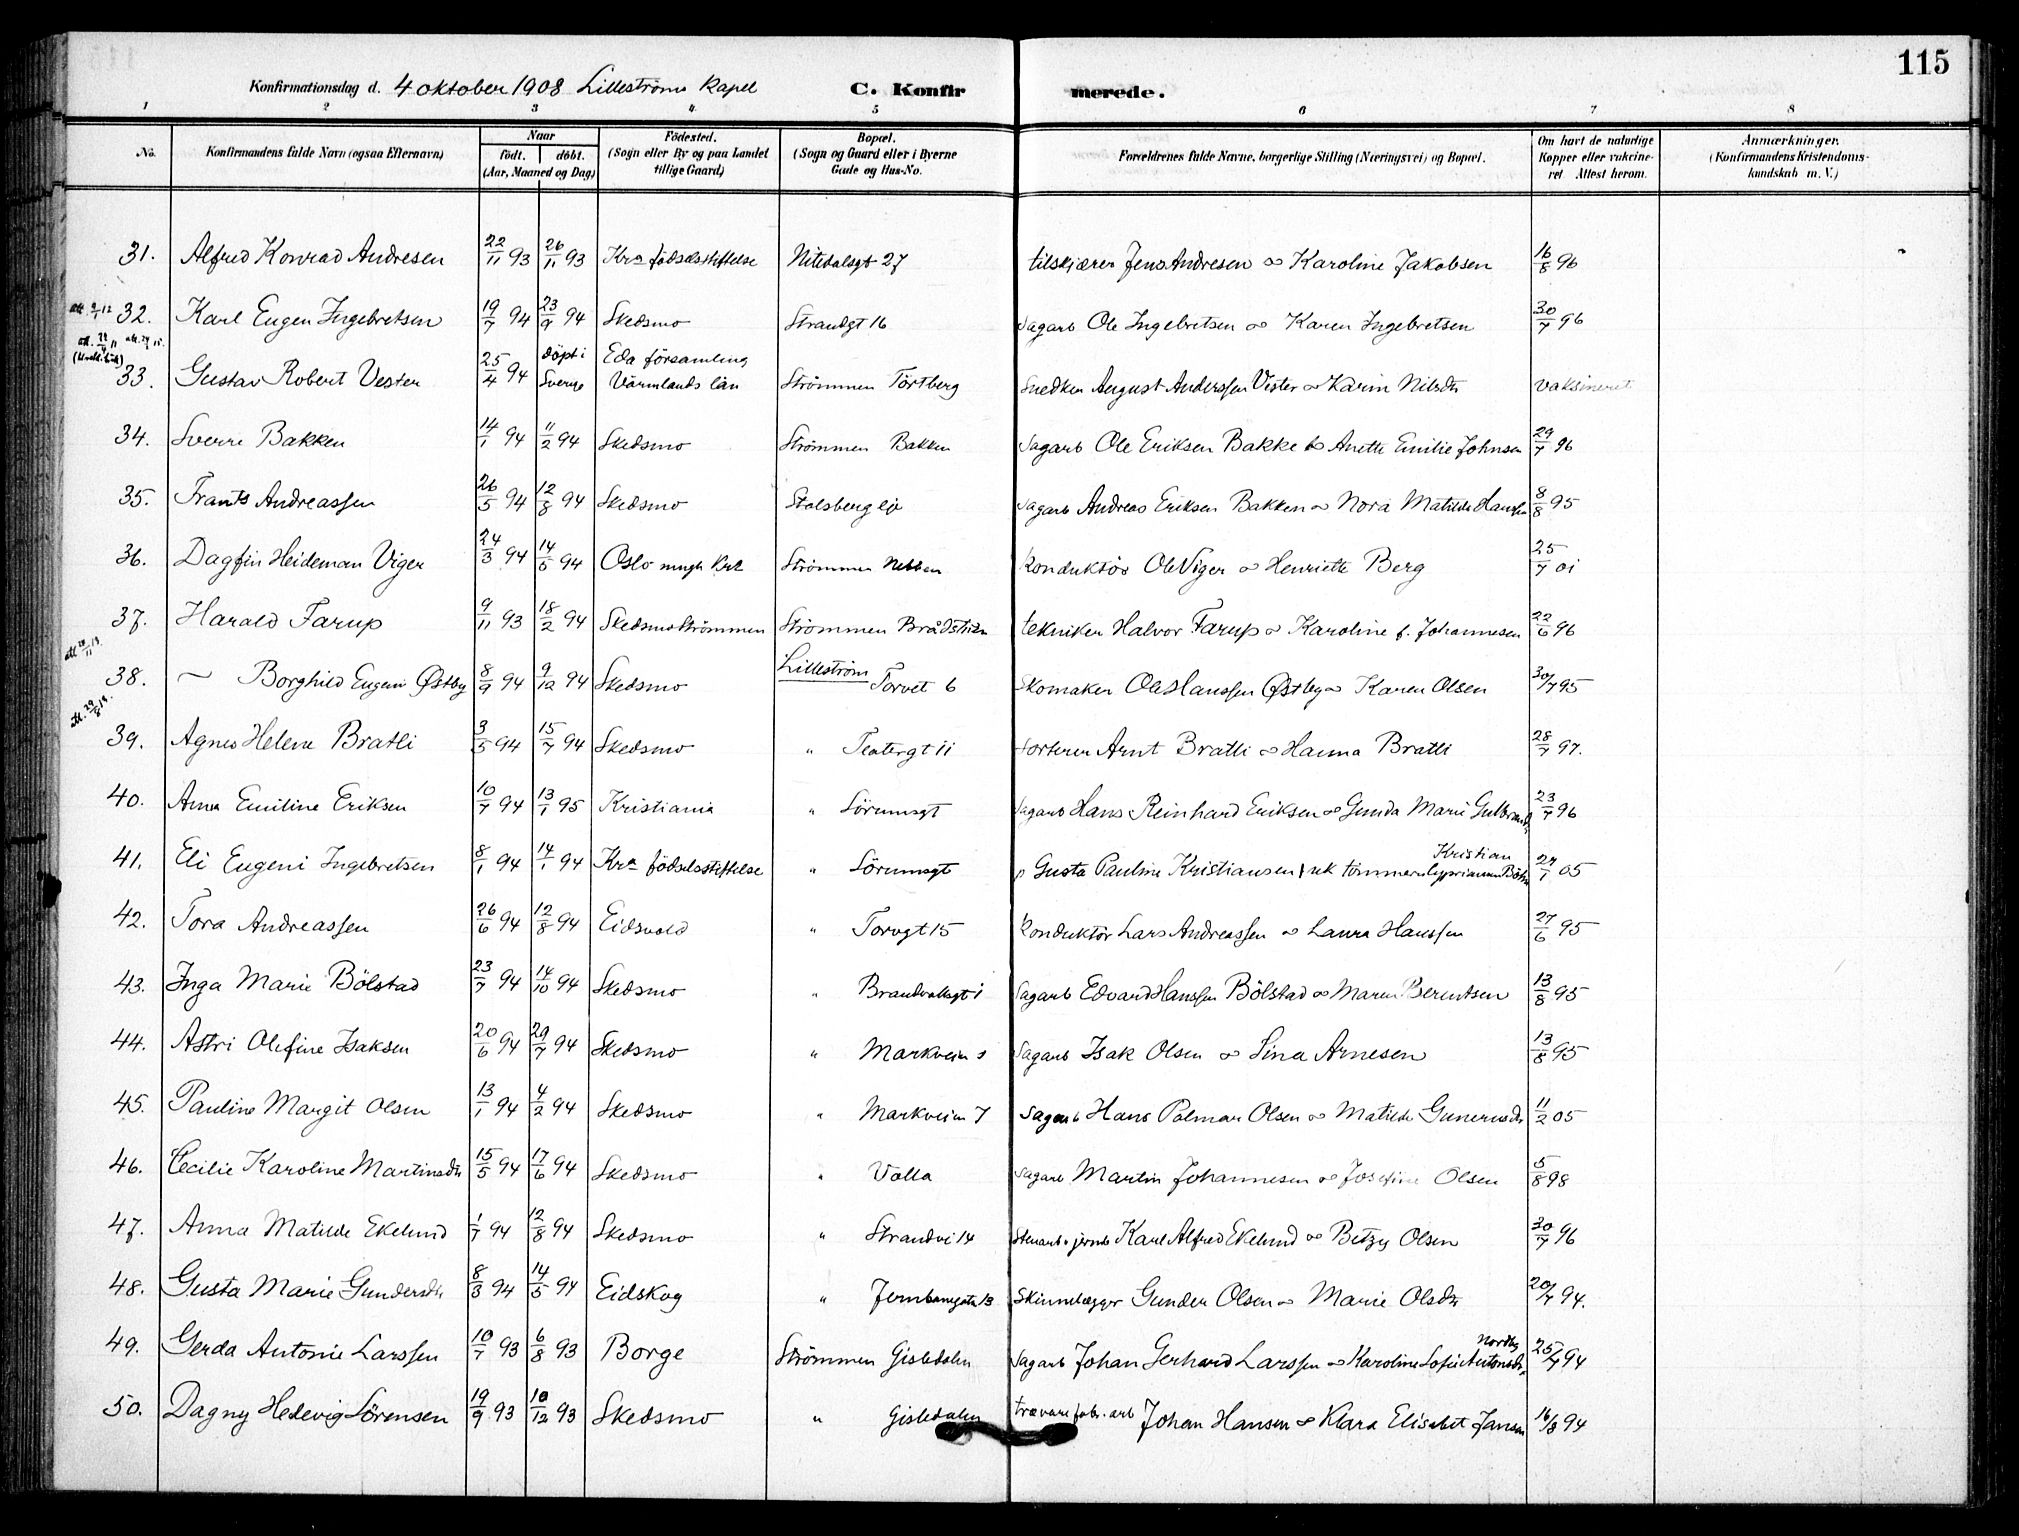 115
Konfirmationsdag d. 4 oktober 1908 Lilleströms kapel C. Konfirmerede.
1 2 3 4 5 6 7 8
No. Konfirmandens fulde Navn (ogsaa Efternavn) Naar födt. döbt. (Aar, Maaned og Dag) Födested. (Sogn eller By og paa Landet tillige Gaard) Bopæl. (Sogn og Gaard eller i Byerne Gade og Hus-No. Forældrenes fulde Navne, borgerlige Stilling (Næringsvei) og Bopæl. Om havt de naturlige Kopper eller vakcineret Attest herom. Anmærkninger. (Konfirmandens Kristendomskundskab m. V.)
31. Alfred Konrad Andresen 22/11 93 26/11 93 Kra födselsstiftelse Nitedalsgt 27 tilskjærer Jens Andresen og Karoline Jakobsen 16/8 96
32. Karl Eugen Ingebretsen 19/7 94 23/9 94 Skedsmo Strandgt 16 Sagarb Ole Ingebretsen og Karen Ingebretsen 30/7 96
33. Gustav Robert Vester 25/4 94 döpt i Sverge Eda församling Värmlands län Strömmen Törtberg Snedker August Anderssen Vester og Karin Nilsdtr vaksineret
34. Sverre Bakken 14/1 94 11/2 94 Skedsmo Strömmen Bakken Sagarb Ole Eriksen Bakke og Anette Emilie Johnsen 29/7 96
35. Frants Andreassen 26/5 94 12/8 94 Skedsmo Stalsberg eje Sagarb Andreas Eriksen Bakken og Nora Matilde Hanssen 8/8 95
36. Dagfin Heideman Viger 24/3 94 14/5 94 Oslo mgh Kra Strömmen Nebben Konduktör Ole Viger og Henriette Berg 25/7 01
37. Harald Farup 9/11 93 18/2 94 Skedsmo Strömmen Strömmen Brådstien tekniker Halvor Farup og Karoline f. Johannesen 22/6 96
38. — Borghild Eugeni Østby 8/9 94 9/12 94 Skedsmo Lilleström Torvet 6 Skomaker Ole Hanssen Østby og Karen Olsen 30/7 95
39. Agnes Helene Bratli 3/5 94 15/7 94 Skedsmo " Teatergt 11 Sorterer Arnt Bratli og Hanna Bratli 28/7 97.
40. Anna Emiline Eriksen 10/7 94 13/1 95 Kristiania " Sörumsgt Sagarb Hans Reinhard Eriksen og Gunda Marie Gulbrandsdtr 23/7 96
41. Eli Eugeni Ingebretsen 8/1 94 14/1 94 Kra födselsstiftelse " Sörumsgt p Gusta Pauline Kristiansen, uk tömmerm Kristian 27/1 05
42. Tora Andreassen 26/6 94 12/8 94 Eidsvold " Torvgt 15 Konduktör Lars Andreassen og Laura Hanssen 27/6 95
43. Inga Marie Bölstad 23/7 94 14/10 94 Skedsmo " Brandvaltsgt 1 Sagarb Edvard Hanssen Bölstad og Maren Berentsen 13/8 95
44. Astri Olefine Isaksen 20/6 94 29/7 94 Skedsmo " Markveien 3 Sagarb Isak Olsen og Lina Arnesen 13/8 95
45. Pauline Margit Olsen 13/1 94 4/2 94 Skedsmo " Markveien 7 Sagarb Hans Palmar Olsen og Matilde Gunerusdtr 11/2 05
46. Cecilie Karoline Martinsdtr 15/5 94 17/6 94 Skedsmo " Volla Sagarb Martin Johannesen og Josefine Olsen 5/8 98
47. Anna Matilde Ekelund 1/7 94 12/8 94 Skedsmo " Strandvei 14 Stenarb. jernb Karl Alfred Ekelund og Betzy Olsen 30/7 96
48. Gusta Marie Gundersdtr 8/3 94 14/5 94 Eidskog " Jernbanegata 13 Skinnelægger Gunder Olsen og Marie Olsdtr 20/7 94.
49. Gerda Antonie Larssen 10/7 93 6/8 93 Borge Strömmen Gisledalen Sagarb Johan Gerhard Larssen og Karoline Sofie Antonsdtr Nordby 25/7 94
50. Dagny Hedevig Sörensen 19/9 93 10/12 93 Skedsmo " Gisledalen trævarefabr. arb Johan Hansen og Klara Elisabet Jansen 16/8 94